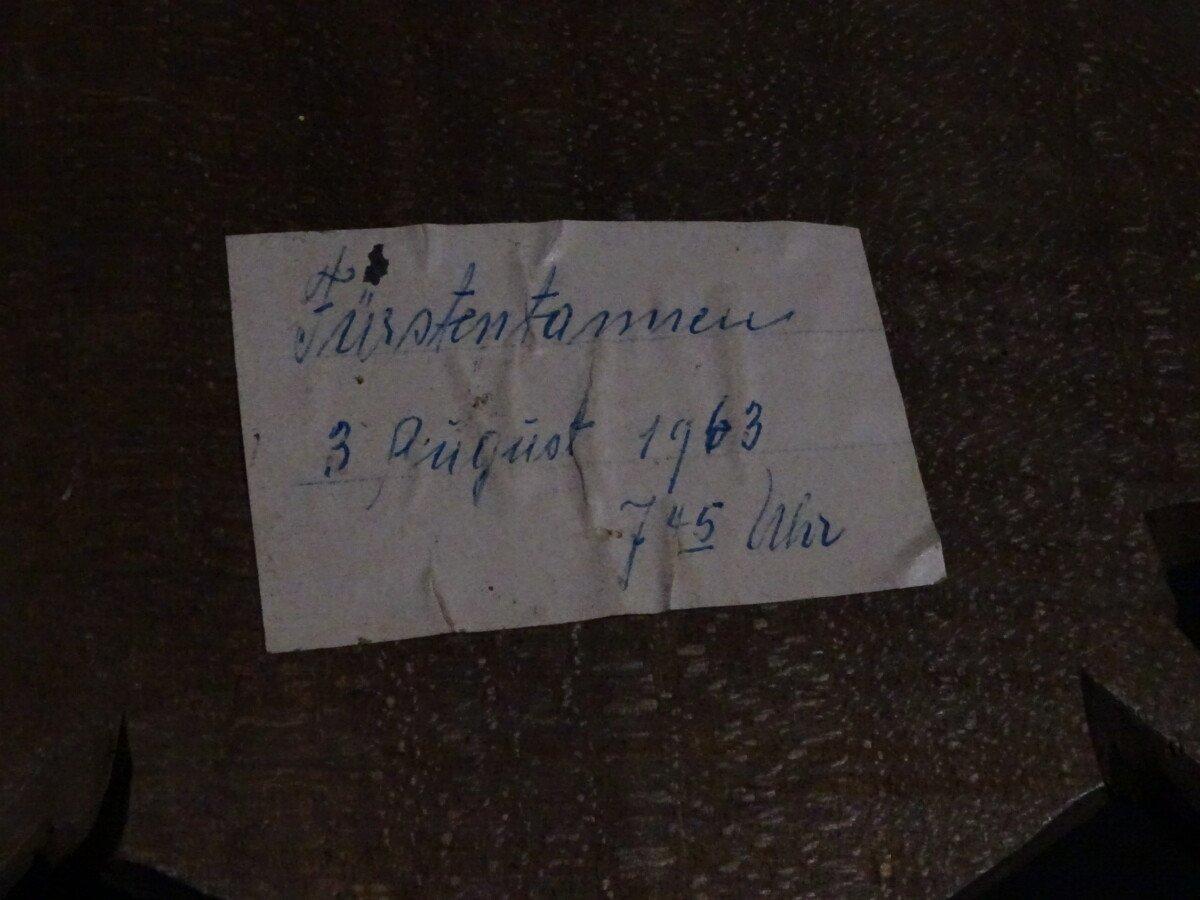 Fürstentannen
3 August 1963
7 45 Uhr